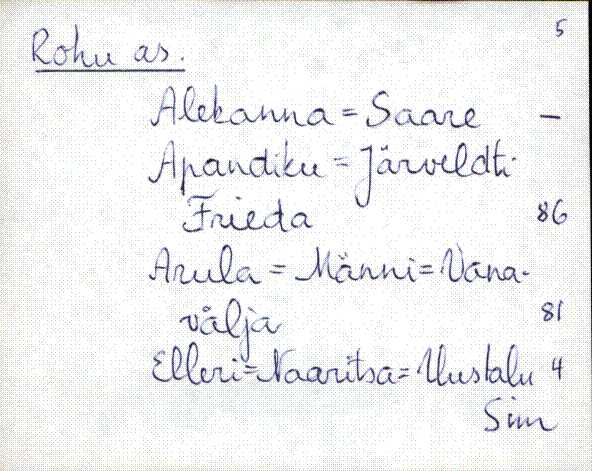 5
Rohu as.
Alekanna = Saare –
Apandiku = Järveldti-
Frieda 86
Arula = Männi = Vana-
välja 81
Elleri = Naaritsa = Uustalu 4
Sim